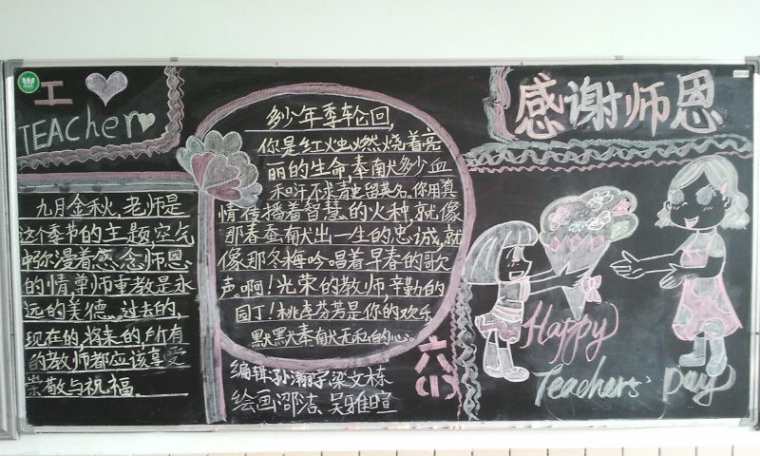 I
TEACher
九月金秋,老师是
这个季节的主题,空气
中弥漫着感念师恩
的情尊师重教是永
远的美德。过去的,
现在的,将来的,所有
的教师都应该享受
崇敬与祝福。
多少年季轮回,
你是红火虫燃烧着亮
丽的生命奉献多少血
和汗不求青史留英名,你用真
情传播着智慧的火种,就像
那春蚕献出一生的忠诚,就
像那冬梅吟唱着早春的歌
声,啊!光荣的教师,辛勤的
园丁!桃李芬芳是你的欢乐
默默奉献无私的心。
编辑:孙瀚宇梁文栋
绘画邵洁、吴雅暄
六(1)
感谢师恩
Happy
Teachers' Day